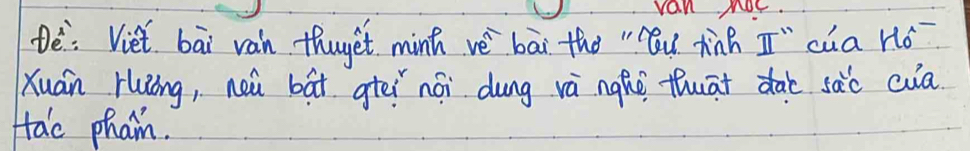 văn học.
Đề: Viết bài văn thuyết minh về bài thơ "Tự tình II" của Hồ
Xuân Hương, nêu bật gtrị nội dung và nghệ thuật đặc sắc của
tác phẩm.